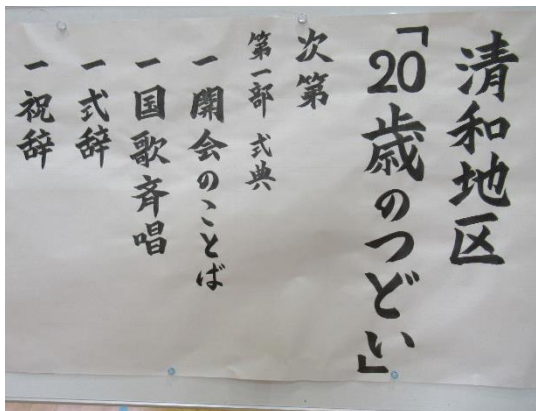 清和地区
「20歳のつどい」
次第
第一部 式典
一 開会のことば
一 国歌斉唱
一 式辞
一 祝辞